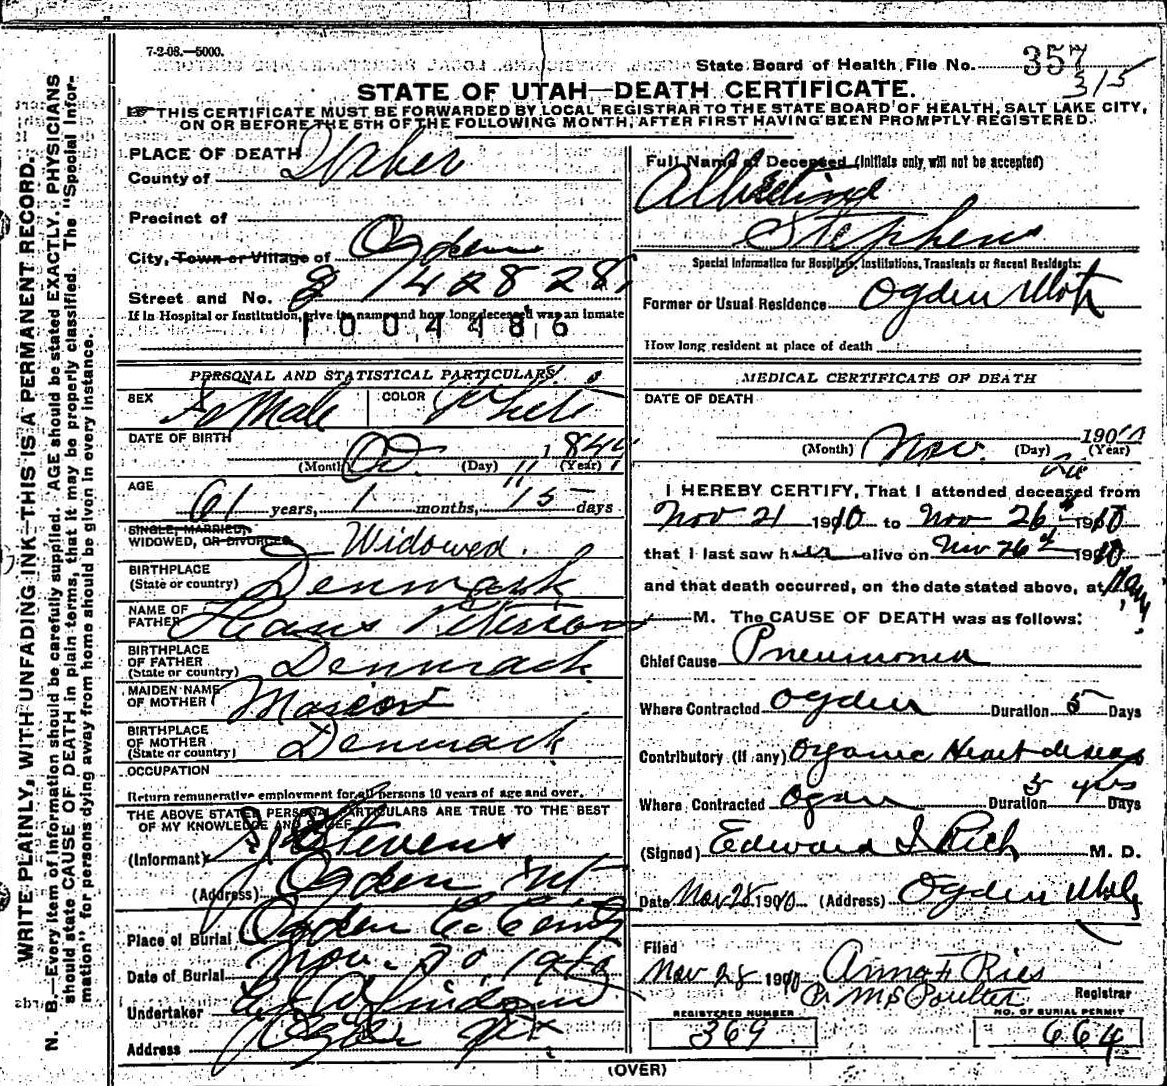 7-2-08.—5000.
State Board of Health File No. 357
315
STATE OF UTAH—DEATH CERTIFICATE.
THIS CERTIFICATE MUST BE FORWARDED BY LOCAL REGISTRAR TO THE STATE BOARD OF HEALTH, SALT LAKE CITY,
ON OR BEFORE THE 5TH OF THE FOLLOWING MONTH, AFTER FIRST HAVING BEEN PROMPTLY REGISTERED.
WRITE PLAINLY, WITH UNFADING INK—THIS IS A PERMANENT RECORD.
N. B.—Every item of information should be carefully supplied. AGE should be stated EXACTLY. PHYSICIANS
should state CAUSE OF DEATH in plain terms, that it may be properly classified. The "Special Infor-
mation" for persons dying away from home should be given in every instance.
PLACE OF DEATH
County of Weber
Precinct of
City, Town or Village of Ogden
Street and No. 1428 28
If in Hospital or Institution, give its name and how long deceased was an inmate
1004486
PERSONAL AND STATISTICAL PARTICULARS.
SEX Female COLOR White
DATE OF BIRTH Oct. 11 1844
(Month) (Day) (Year)
AGE
61 years, 1 months, 15 days
SINGLE, MARRIED,
WIDOWED, OR DIVORCED Widowed.
BIRTHPLACE
(State or country) Denmark
NAME OF
FATHER Hans Peterson
BIRTHPLACE
OF FATHER
(State or country) Denmark
MAIDEN NAME
OF MOTHER
BIRTHPLACE
OF MOTHER
(State or country) Denmark
OCCUPATION
Return remunerative employment for all persons 10 years of age and over.
THE ABOVE STATED PERSONAL PARTICULARS ARE TRUE TO THE BEST
OF MY KNOWLEDGE AND BELIEF
(Informant) Stevens
(Address) Ogden, Ut
Place of Burial Ogden C. Cemty
Date of Burial Nov. 30, 1910
Undertaker
Address Ogden
Full Name of Deceased (Initials only will not be accepted)
Albertina
Stephens
Special Information for Hospitals, Institutions, Transients or Recent Residents:
Former or Usual Residence Ogden Utah
How long resident at place of death
MEDICAL CERTIFICATE OF DEATH
DATE OF DEATH
Nov. 26 1910
(Month) (Day) (Year)
I HEREBY CERTIFY, That I attended deceased from
Nov 21 1910 to Nov 26 1910
that I last saw her alive on Nov 26 1910
and that death occurred, on the date stated above, at
M. The CAUSE OF DEATH was as follows:
Chief Cause Pneumonia
Where Contracted Ogden Duration 5 Days
Contributory (if any) Organic Heart disease
Where Contracted Ogden Duration 5 yrs Days
(Signed) Edward I Rich M. D.
Date Nov 28 1910 (Address) Ogden Utah
Filed
Nov 28 1910 Anna F Ries
Pr M S Poulter Registrar
REGISTERED NUMBER
369
NO. OF BURIAL PERMIT
664
(OVER)